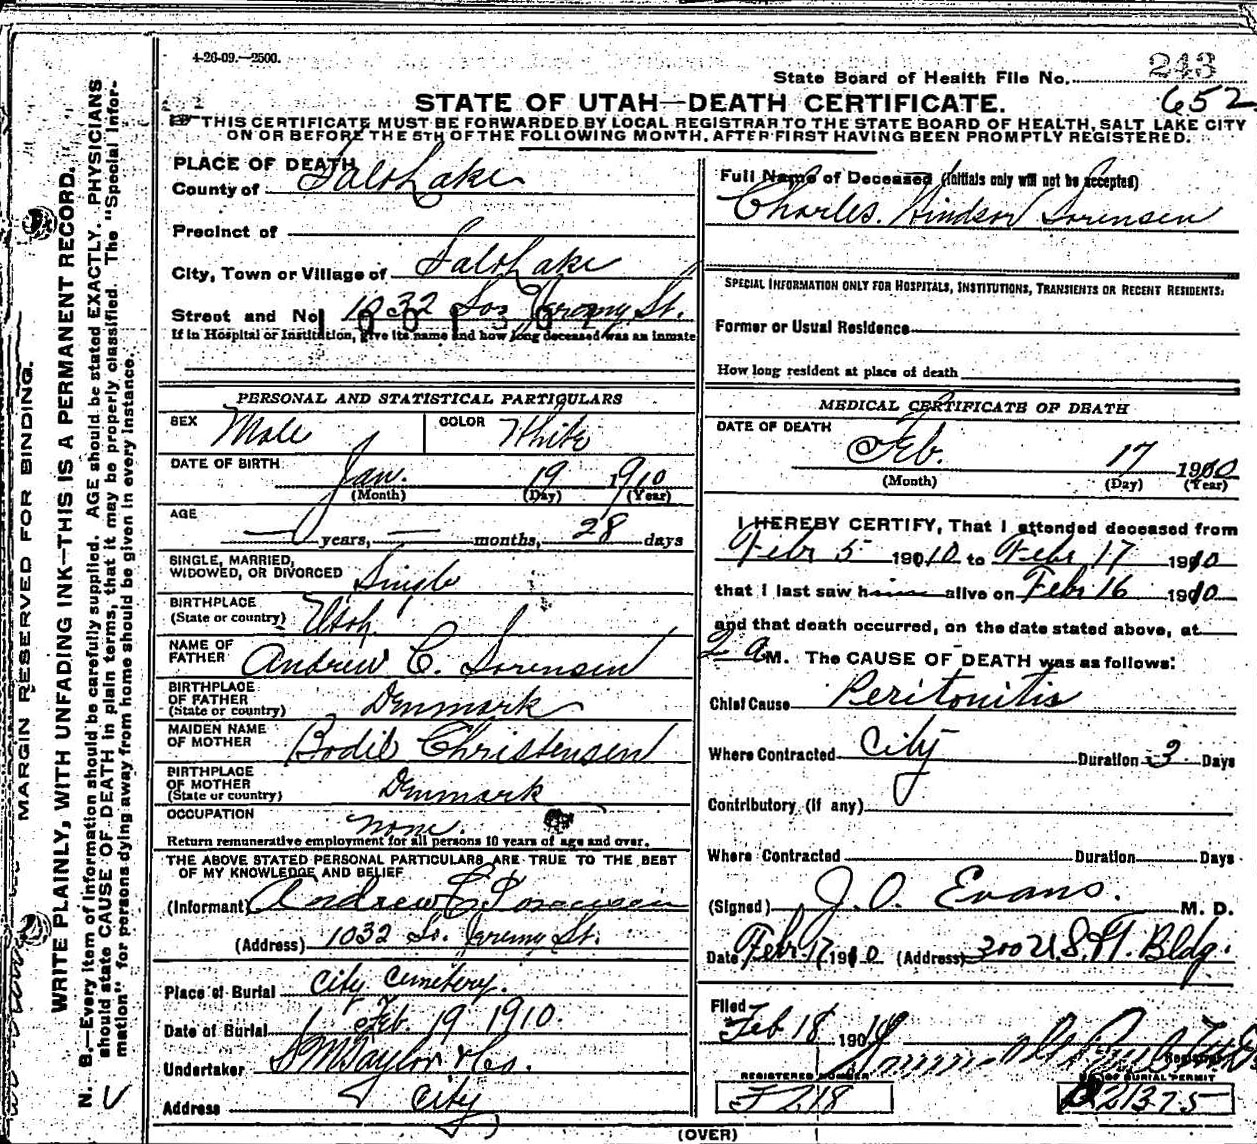 4-26-09.—2500.
State Board of Health File No. 243
652
STATE OF UTAH—DEATH CERTIFICATE.
THIS CERTIFICATE MUST BE FORWARDED BY LOCAL REGISTRAR TO THE STATE BOARD OF HEALTH, SALT LAKE CITY
ON OR BEFORE THE 5TH OF THE FOLLOWING MONTH, AFTER FIRST HAVING BEEN PROMPTLY REGISTERED.
MARGIN RESERVED FOR BINDING.
WRITE PLAINLY, WITH UNFADING INK—THIS IS A PERMANENT RECORD.
N. B.—Every item of information should be carefully supplied. AGE should be stated EXACTLY. PHYSICIANS
should state CAUSE OF DEATH in plain terms, that it may be properly classified. The "Special Infor-
mation" for persons dying away from home should be given in every instance.
PLACE OF DEATH
County of Salt Lake
Precinct of
City, Town or Village of Salt Lake
Street and No. 1032 So. Jeremy St.
If in Hospital or Institution, give its name and how long deceased was an inmate
PERSONAL AND STATISTICAL PARTICULARS
SEX Male COLOR White
DATE OF BIRTH Jan. 19 1910
(Month) (Day) (Year)
AGE — years, — months, 28 days
SINGLE, MARRIED,
WIDOWED, OR DIVORCED Single
BIRTHPLACE
(State or country) Utah
NAME OF
FATHER Andrew C. Sorensen
BIRTHPLACE
OF FATHER
(State or country) Denmark
MAIDEN NAME
OF MOTHER Bodil Christensen
BIRTHPLACE
OF MOTHER
(State or country) Denmark
OCCUPATION none.
Return remunerative employment for all persons 10 years of age and over.
THE ABOVE STATED PERSONAL PARTICULARS ARE TRUE TO THE BEST
OF MY KNOWLEDGE AND BELIEF
(Informant) Andrew C Sorensen
(Address) 1032 So. Jeremy St.
Place of Burial City Cemetery.
Date of Burial Feb. 19 1910.
Undertaker S M Taylor & Co.
Address City
Full Name of Deceased (Initials only will not be accepted)
Charles. Windsor Sorensen
SPECIAL INFORMATION ONLY FOR HOSPITALS, INSTITUTIONS, TRANSIENTS OR RECENT RESIDENTS:
Former or Usual Residence
How long resident at place of death
MEDICAL CERTIFICATE OF DEATH
DATE OF DEATH
Feb. 17 1910
(Month) (Day) (Year)
I HEREBY CERTIFY, That I attended deceased from
Febr 5 19010 to Febr 17 1910
that I last saw him alive on Febr 16 1910
and that death occurred, on the date stated above, at
2 a M. The CAUSE OF DEATH was as follows:
Chief Cause Peritonitis
Where Contracted City Duration 3 Days
Contributory (if any)
Where Contracted Duration Days
(Signed) J. O. Evans. M. D.
Date Febr 17 1910 (Address) Bldg.
Filed
Feb 18 1910
Registrar
REGISTERED NUMBER
F218
NO. OF BURIAL PERMIT
B21375
(OVER)